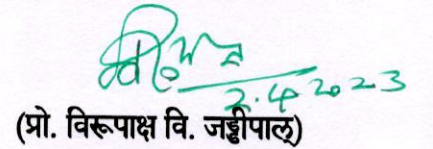 2.4.2023
(प्रो. विरूपाक्ष वि. जड्डीपाल्)